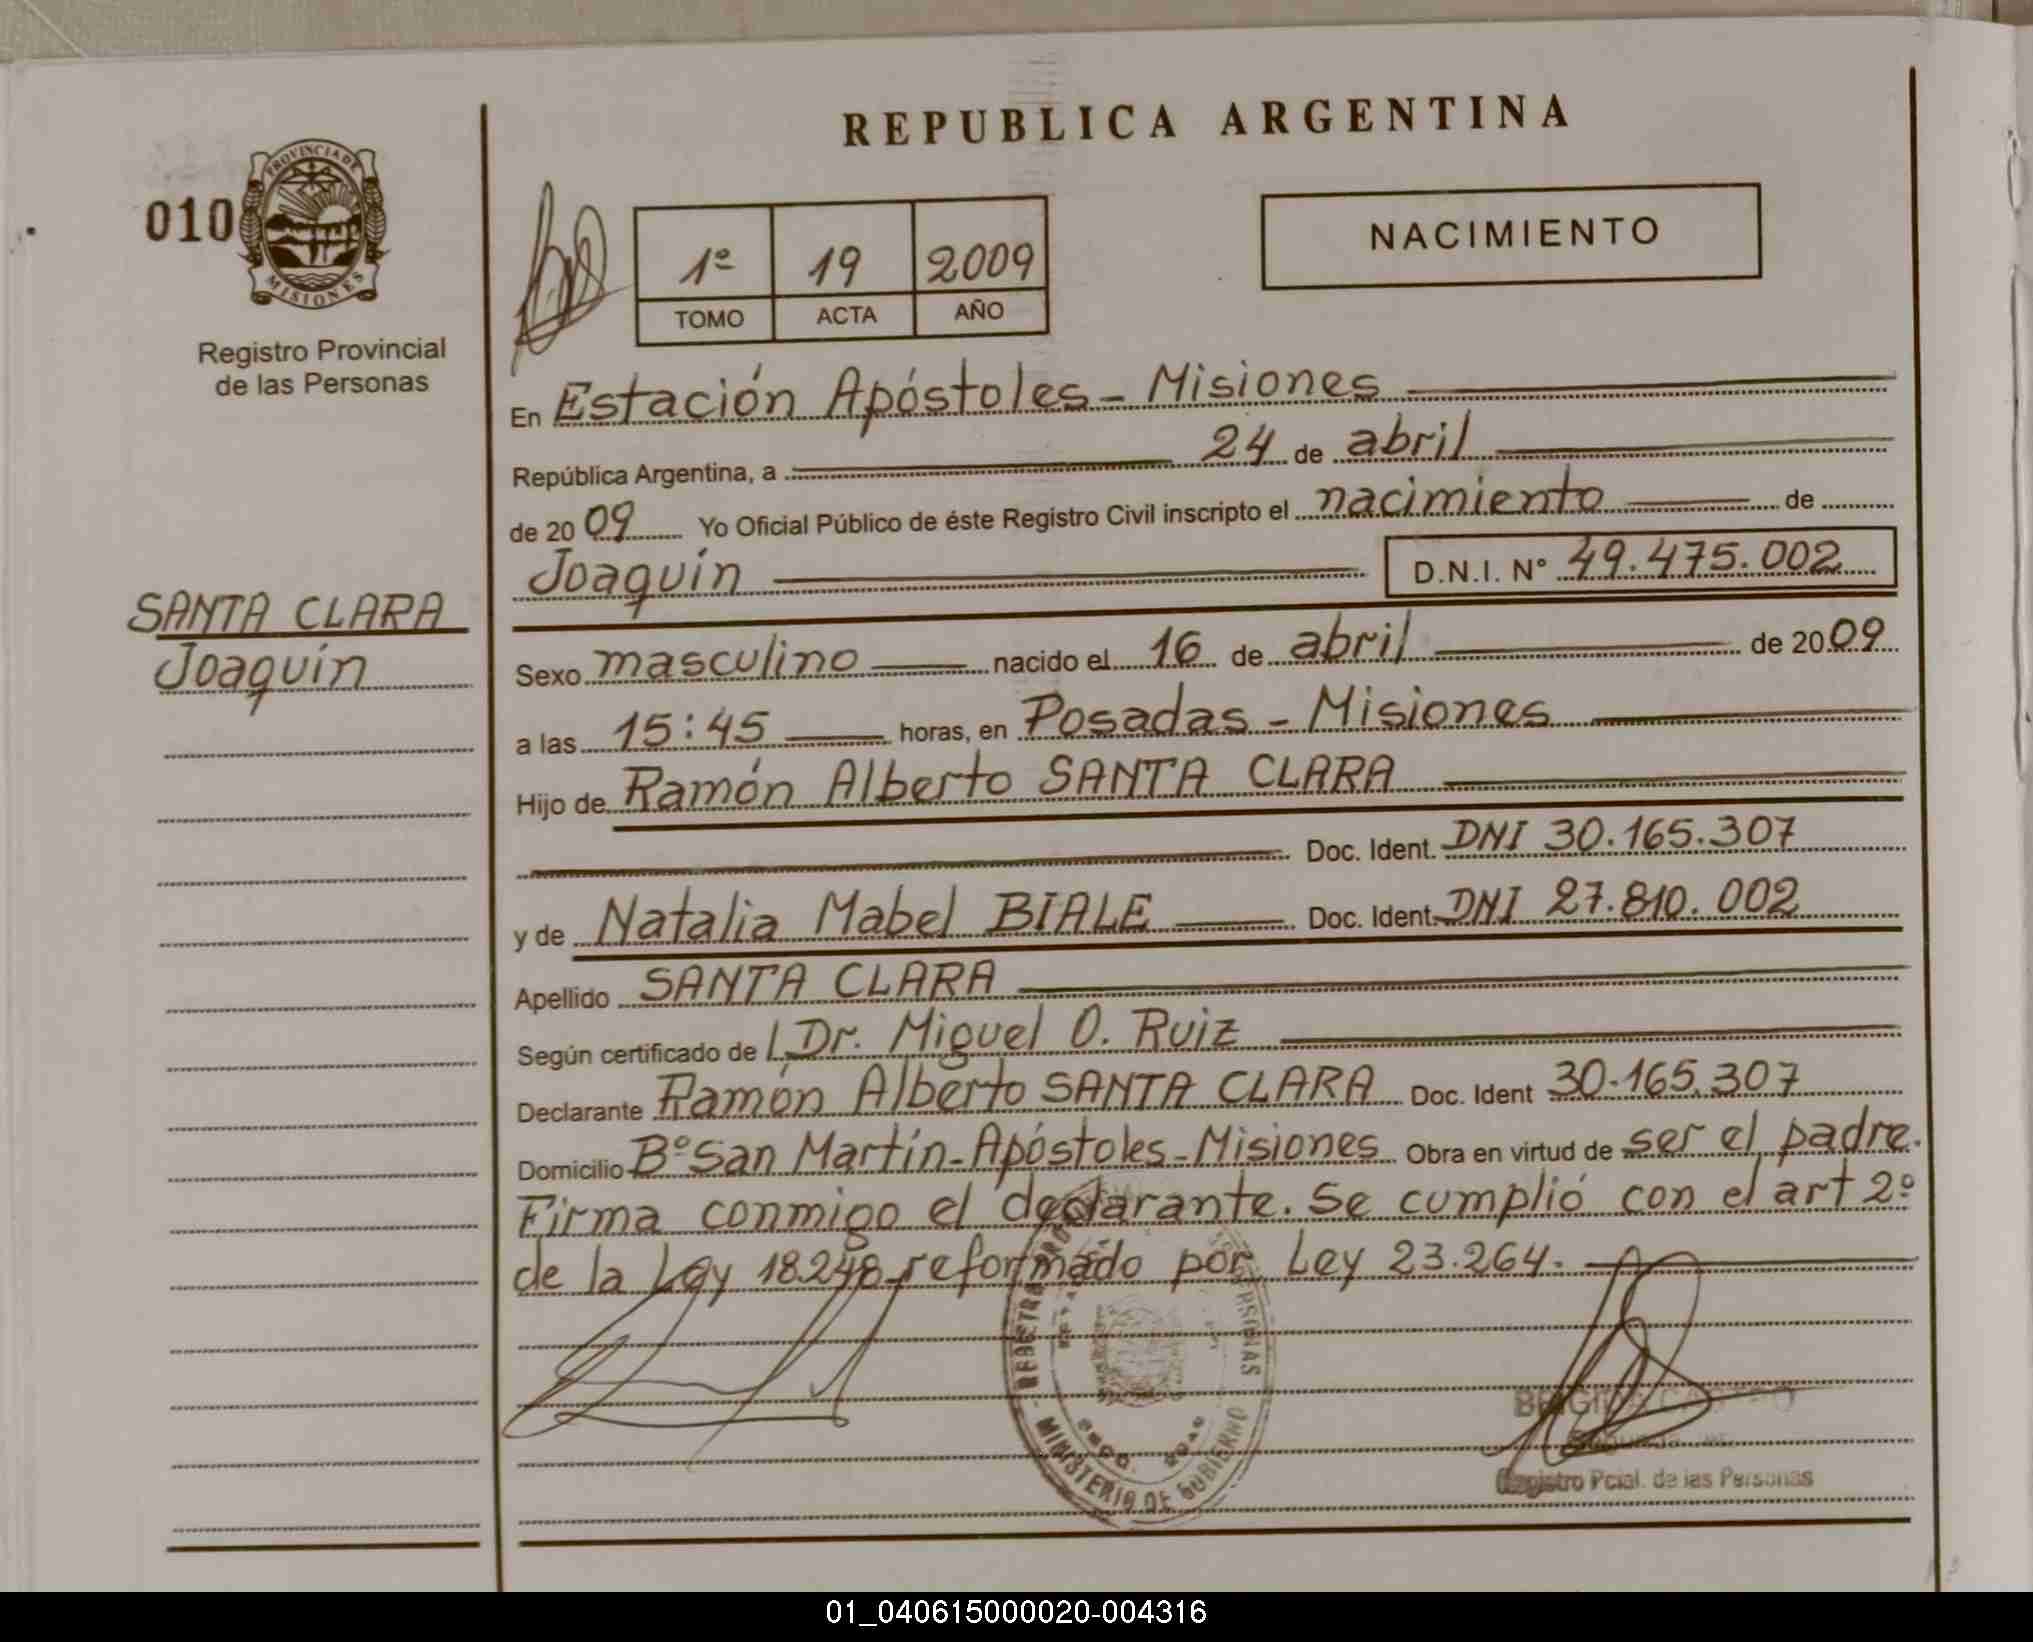 REPUBLICA ARGENTINA
010
PROVINCIA DE
MISIONES
Registro Provincial
de las Personas
SANTA CLARA
Joaquín
1º 19 2009
TOMO ACTA AÑO
NACIMIENTO
En Estación Apóstoles - Misiones
República Argentina, a 24 de abril
de 2009 Yo Oficial Público de éste Registro Civil inscripto el nacimiento de
Joaquín D.N.I. Nº 49.475.002
Sexo masculino nacido el 16 de abril de 2009
a las 15:45 horas, en Posadas - Misiones
Hijo de Ramón Alberto SANTA CLARA
Doc. Ident. DNI 30.165.307
y de Natalia Mabel BIALE Doc. Ident. DNI 27.810.002
Apellido SANTA CLARA
Según certificado de l Dr. Miguel O. Ruiz
Declarante Ramón Alberto SANTA CLARA Doc. Ident 30.165.307
Domicilio Bº San Martín - Apóstoles - Misiones Obra en virtud de ser el padre.
Firma conmigo el declarante. Se cumplió con el art 2º
de la Ley 18.248 reformado por Ley 23.264.
MINISTERIO DE GOBIERNO
Registro Pcial. de las Personas
01_040615000020-004316